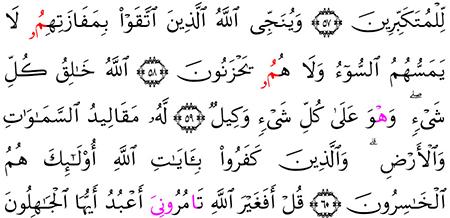 لِّلْمُتَكَبِّرِينَ ٥٧ وَيُنَجِّى ٱللَّهُ ٱلَّذِينَ ٱتَّقَوْا۟ بِمَفَازَتِهِمُۥ لَا
يَمَسُّهُمُ ٱلسُّوٓءُ وَلَا هُمُۥ يَحْزَنُونَ ٥٨ ٱللَّهُ خَـٰلِقُ كُلِّ
شَىْءٍ ۖ وَهْوَ عَلَىٰ كُلِّ شَىْءٍ وَكِيلٌ ٥٩ لَّهُۥ مَقَالِيدُ ٱلسَّمَـٰوَٰتِ
وَٱلْأَرْضِ ۗ وَٱلَّذِينَ كَفَرُوا۟ بِـَٔايَـٰتِ ٱللَّهِ أُو۟لَـٰٓئِكَ هُمُ
ٱلْخَـٰسِرُونَ ٦٠ قُلْ أَفَغَيْرَ ٱللَّهِ تَامُرُونِىَ أَعْبُدُ أَيُّهَا ٱلْجَـٰهِلُونَ